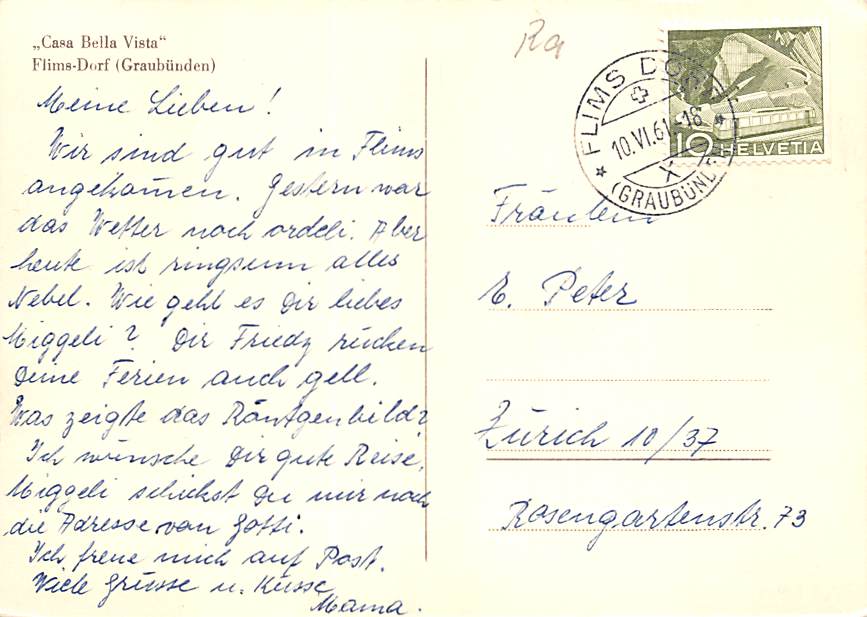 „Casa Bella Vista“
Flims-Dorf (Graubünden)
Meine Lieben!
Wir sind gut in Flims
angekomen. Gestern war
das Wetter noch ordeli. Aber
heute ist ringsum alles
Nebel. Wie geht es Dir liebes
Miggeli? Dir Friedy rücken
Deine Ferien auch gell.
Was zeigte das Röntgenbild?
Ich wünsche Dir gute Reise,
Miggeli schickst Du mir noch
die Adresse von Gotti.
Ich freue mich auf Post.
Viele Grüsse u. Küsse
Mama.
Ra
FLIMS DORF
10.VI.61-18
X
(GRAUBÜNDEN)
10 HELVETIA
Fräulein
E. Peter
Zürich 10/37
Rosengartenstr. 73